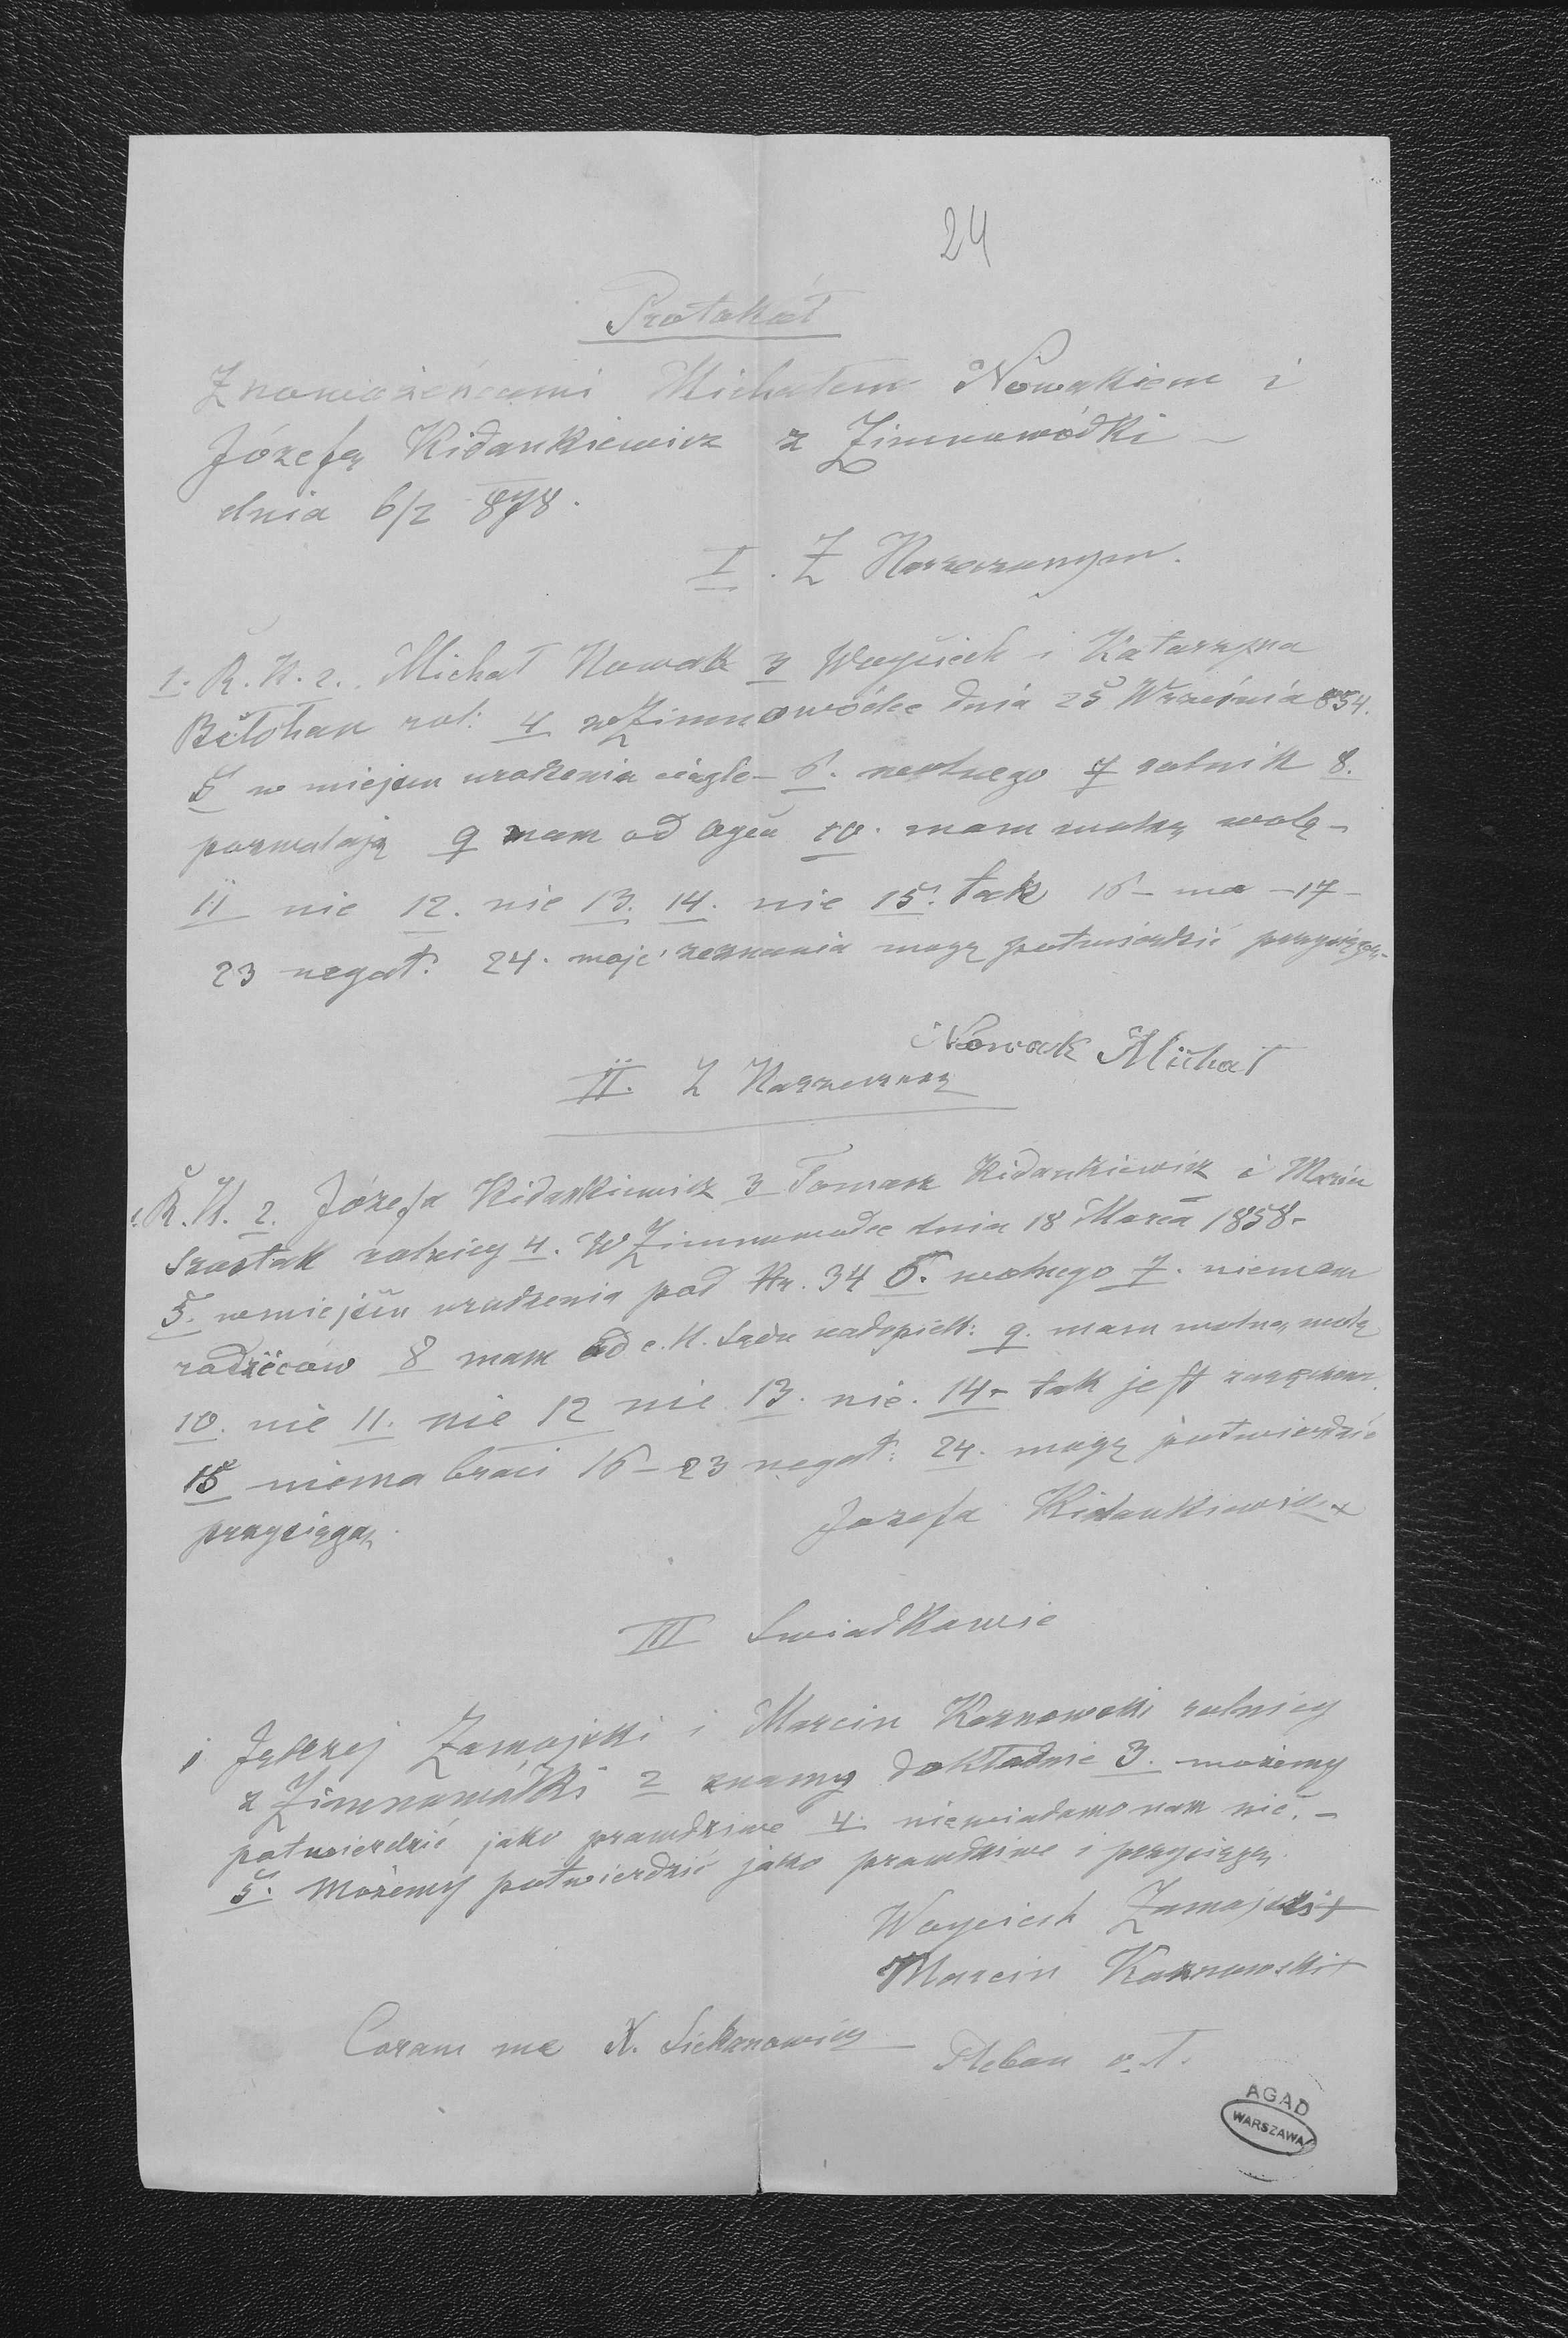 24
Protokół
Z nowożeńcami Michałem Nowakiem i
Józefą Kidankiewicz z Zimnowódki –
dnia 6/2 878.
I. Z Narzeczonym.
1. R. K. 2. Michał Nowak 3 Wojciech i Katarzyna
rol: 4 w Zimnowódce dnia 25 Września 854.
5 w miejscu urodzenia ciągle – 6. wolnego 7 rolnik 8.
pozwalają 9 mam od Ojca 10. mam wolną wolę –
11 nie 12. nie 13. 14. nie 15. tak 16 – ma – 17 –
23 negat. 24. moje zeznania mogę potwierdzić przysięgą. –
Nowak Michał
II. Z Narzeczoną
1. R. K. 2. Józefa Kidankiewicz 3 Tomasz Kidankiewicz i Maria
Szostak rolnicy 4. W Zimnowodce dnia 18 Marca 1858 –
5. w miejscu urodzenia pod Nr. 34 6. wolnego 7. niemam
rodziców 8 mam od c. K. Sądu nadopiek: 9. mam wolną wolę
10. nie 11. nie 12 nie 13. nie. 14 – tak jest
15 niema braci 16 – 23 negat: 24. mogę potwierdzić
przysięgą.
Jozefa Kidankiewicz +
III Swiadkowie
1 Jędrzej Zamojski i Marcin Koznowski rolnicy
z Zimnowódki 2 znamy dokładnie 3. możemy
potwierdzić jako prawdziwe 4. niewiadomo nam nic. –
5. Możemy potwierdzić jako prawdziwe i przysięgą.
Woyciech Zamojski +
Marcin Koznowski +
Coram me X. Siekanowicz – Pleban o. ł.
AGAD
WARSZAWA